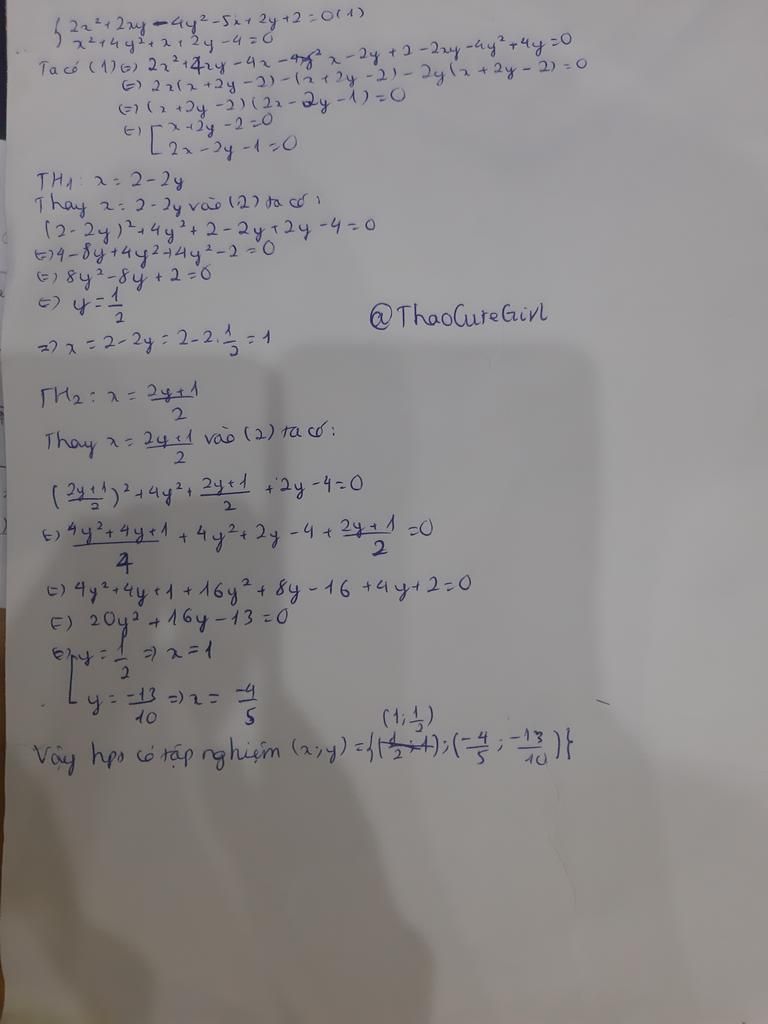 { 2x²+2xy-4y²-5x+2y+2=0 (1)
x²+4y²+x+2y-4=0
Ta có (1) (=) 2x²+4xy-4x-x-2y+2-2xy-4y²+4y=0
(=) 2x(x+2y-2)-(x+2y-2)-2y(x+2y-2)=0
(=) (x+2y-2)(2x-2y-1)=0
(=) [ x+2y-2=0
2x-2y-1=0
TH1: x=2-2y
Thay x=2-2y vào (2) ta có:
(2-2y)²+4y²+2-2y+2y-4=0
(=) 4-8y+4y²+4y²-2=0
(=) 8y²-8y+2=0
(=) y=1/2
=) x=2-2y=2-2.1/2=1
@ThaoCuteGirl
TH2: x=(2y+1)/2
Thay x=(2y+1)/2 vào (2) ta có:
((2y+1)/2)²+4y²+(2y+1)/2+2y-4=0
(=) (4y²+4y+1)/4+4y²+2y-4+(2y+1)/2=0
(=) 4y²+4y+1+16y²+8y-16+4y+2=0
(=) 20y²+16y-13=0
(=) [ y=1/2 =) x=1
y=-13/10 =) x=-4/5
Vậy hpt có tập nghiệm (x;y)={(1;1/2);(-4/5;-13/10)}